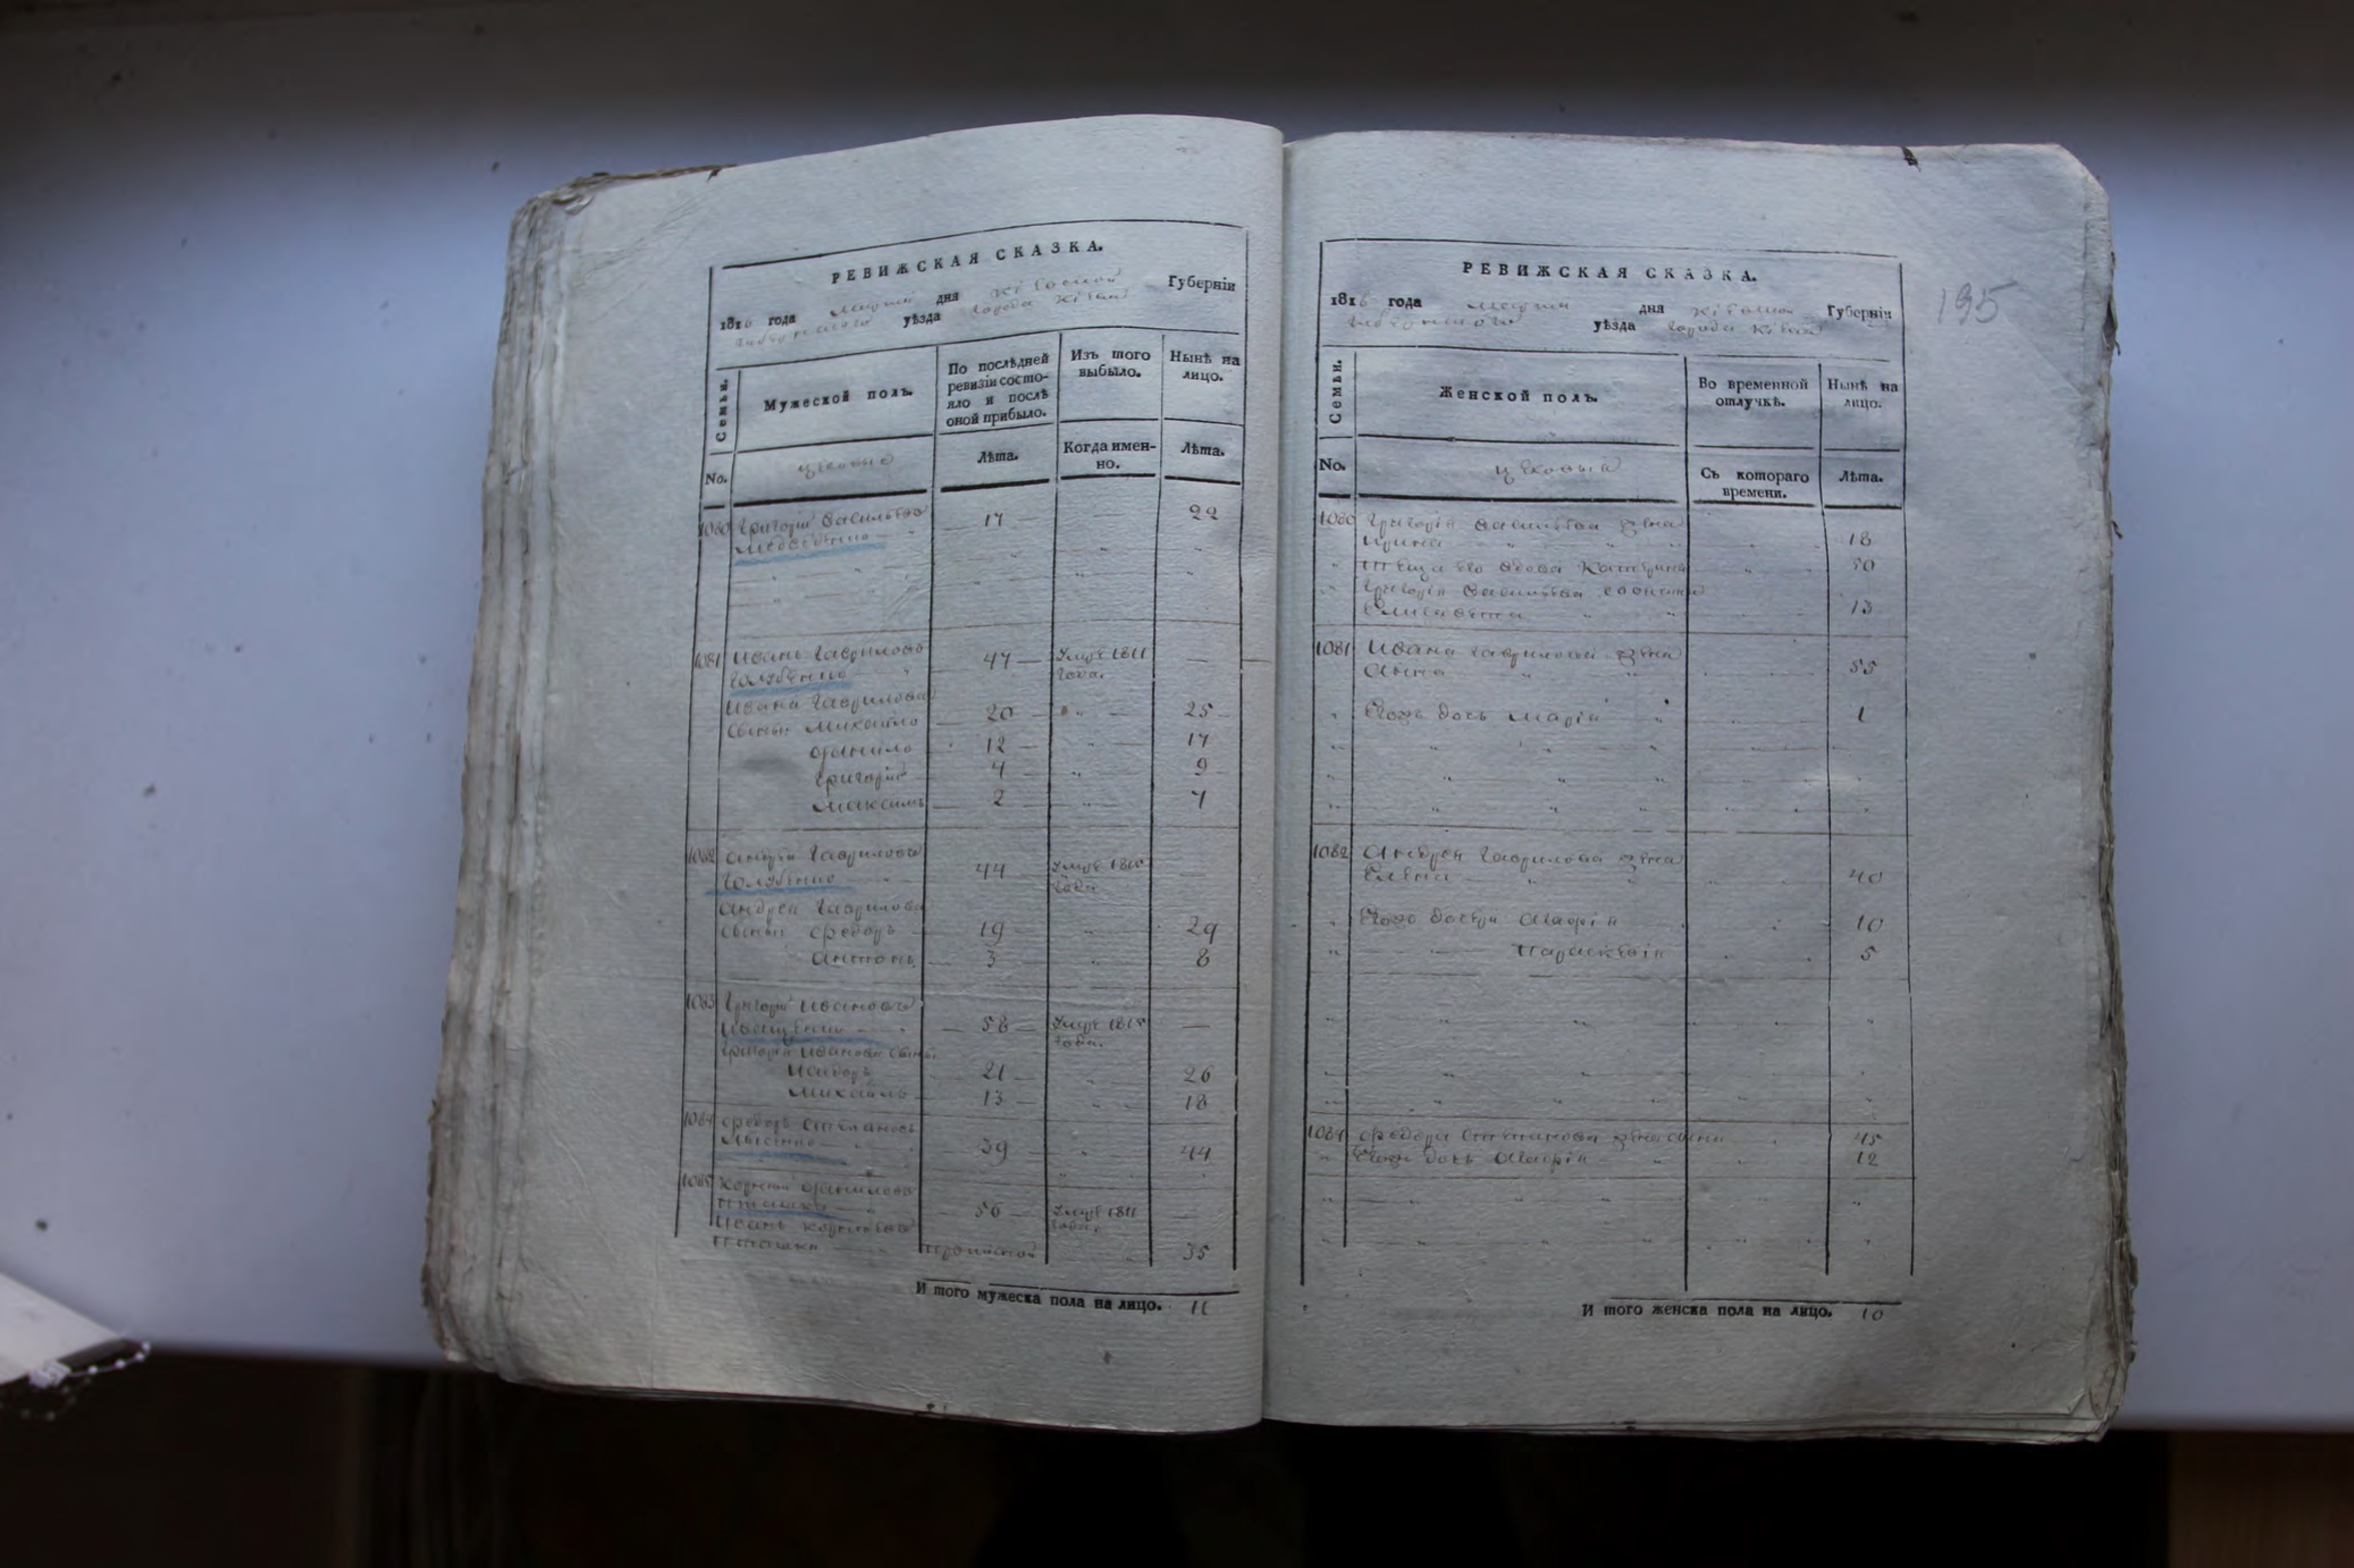 РЕВИЖСКАЯ СКАЗКА.
1816 года марта дня Кіевской Губерніи
уѣзда города Кіева
Семьи.
Мужеской полъ.
По послѣдней ревизіи состояло и послѣ оной прибыло.
Изъ того выбыло.
Нынѣ на лицо.
No.
цеховые
Лѣта.
Когда именно.
Лѣта.
1080 Григорій Васильевъ 17 22
Медведенко
1081 Иванъ Гавриловъ 47 Умре 1811
Голубенко года.
Ивана Гаврилова 20 25
Сыны: Михайло
Данило 12 17
Григорій 4 9
Максимъ 2 7
1082 Андрей Гавриловъ 44 Умре 1815
Голубенко года
Андрея Гаврилова
сыны Федоръ 19 29
Антонъ 3 8
1083 Григорій Ивановъ
Иващенко 58 Умре 1815
Григорія Иванова сыны года.
21 26
Михайло 13 18
1084 Федоръ Степановъ
39 44
1085 Корней Даниловъ
Пташка 56 Умре 1811
Иванъ Корнеевъ года.
Пташка 35
И того мужеска пола на лицо. 11
РЕВИЖСКАЯ СКАЗКА.
195
1816 года марта дня Кіевской Губерніи
уѣзда города Кіева
Семьи.
Женской полъ.
Во временной отлучкѣ.
Нынѣ на лицо.
No.
цеховые
Съ котораго времени.
Лѣта.
1080 Григорія Васильева жена
Ирина 18
Теща его вдова Катерина 50
Григорія Васильева
Елисавета 13
1081 Ивана Гаврилова жена
Анна 55
Егожъ дочь Марія 1
1082 Андрея Гаврилова жена
Елена 40
Егожъ дочери Агафія 10
Параскевія 5
1084 Федора Степанова жена 45
Егожъ дочь Агафія 12
И того женска пола на лицо. 10